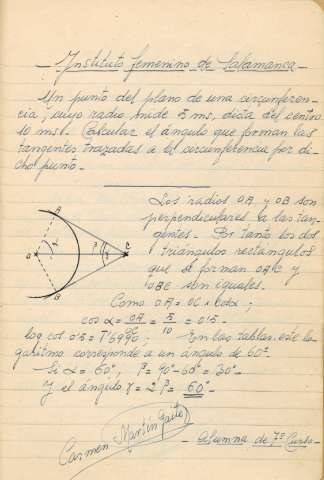 - Instituto femenino de Salamanca -
Un punto del plano de una circunferen-
cia, cuyo radio mide 5 ms, dista del centro
10 ms. Calcular el ángulo que forman las
tangentes trazadas a la circunferencia por di-
cho punto.
Los radios OA y OB son
perpendiculares a las tan-
gentes. Por tanto los dos
triángulos rectángulos
que se forman OAC y
OBC son iguales.
A
O α β γ C
B
Como OA = OC × cos α ;
cos α = OA/OC = 5/10 = 0'5 -
log cos 0'5 = 1̄'69990 ; En las tablas este lo-
garitmo corresponde a un ángulo de 60º.
Si α = 60º, β = 90º-60º = 30º -
Y el ángulo γ = 2 β = 60º -
Carmen Martín Gaite
- Alumna de 7º Curso -